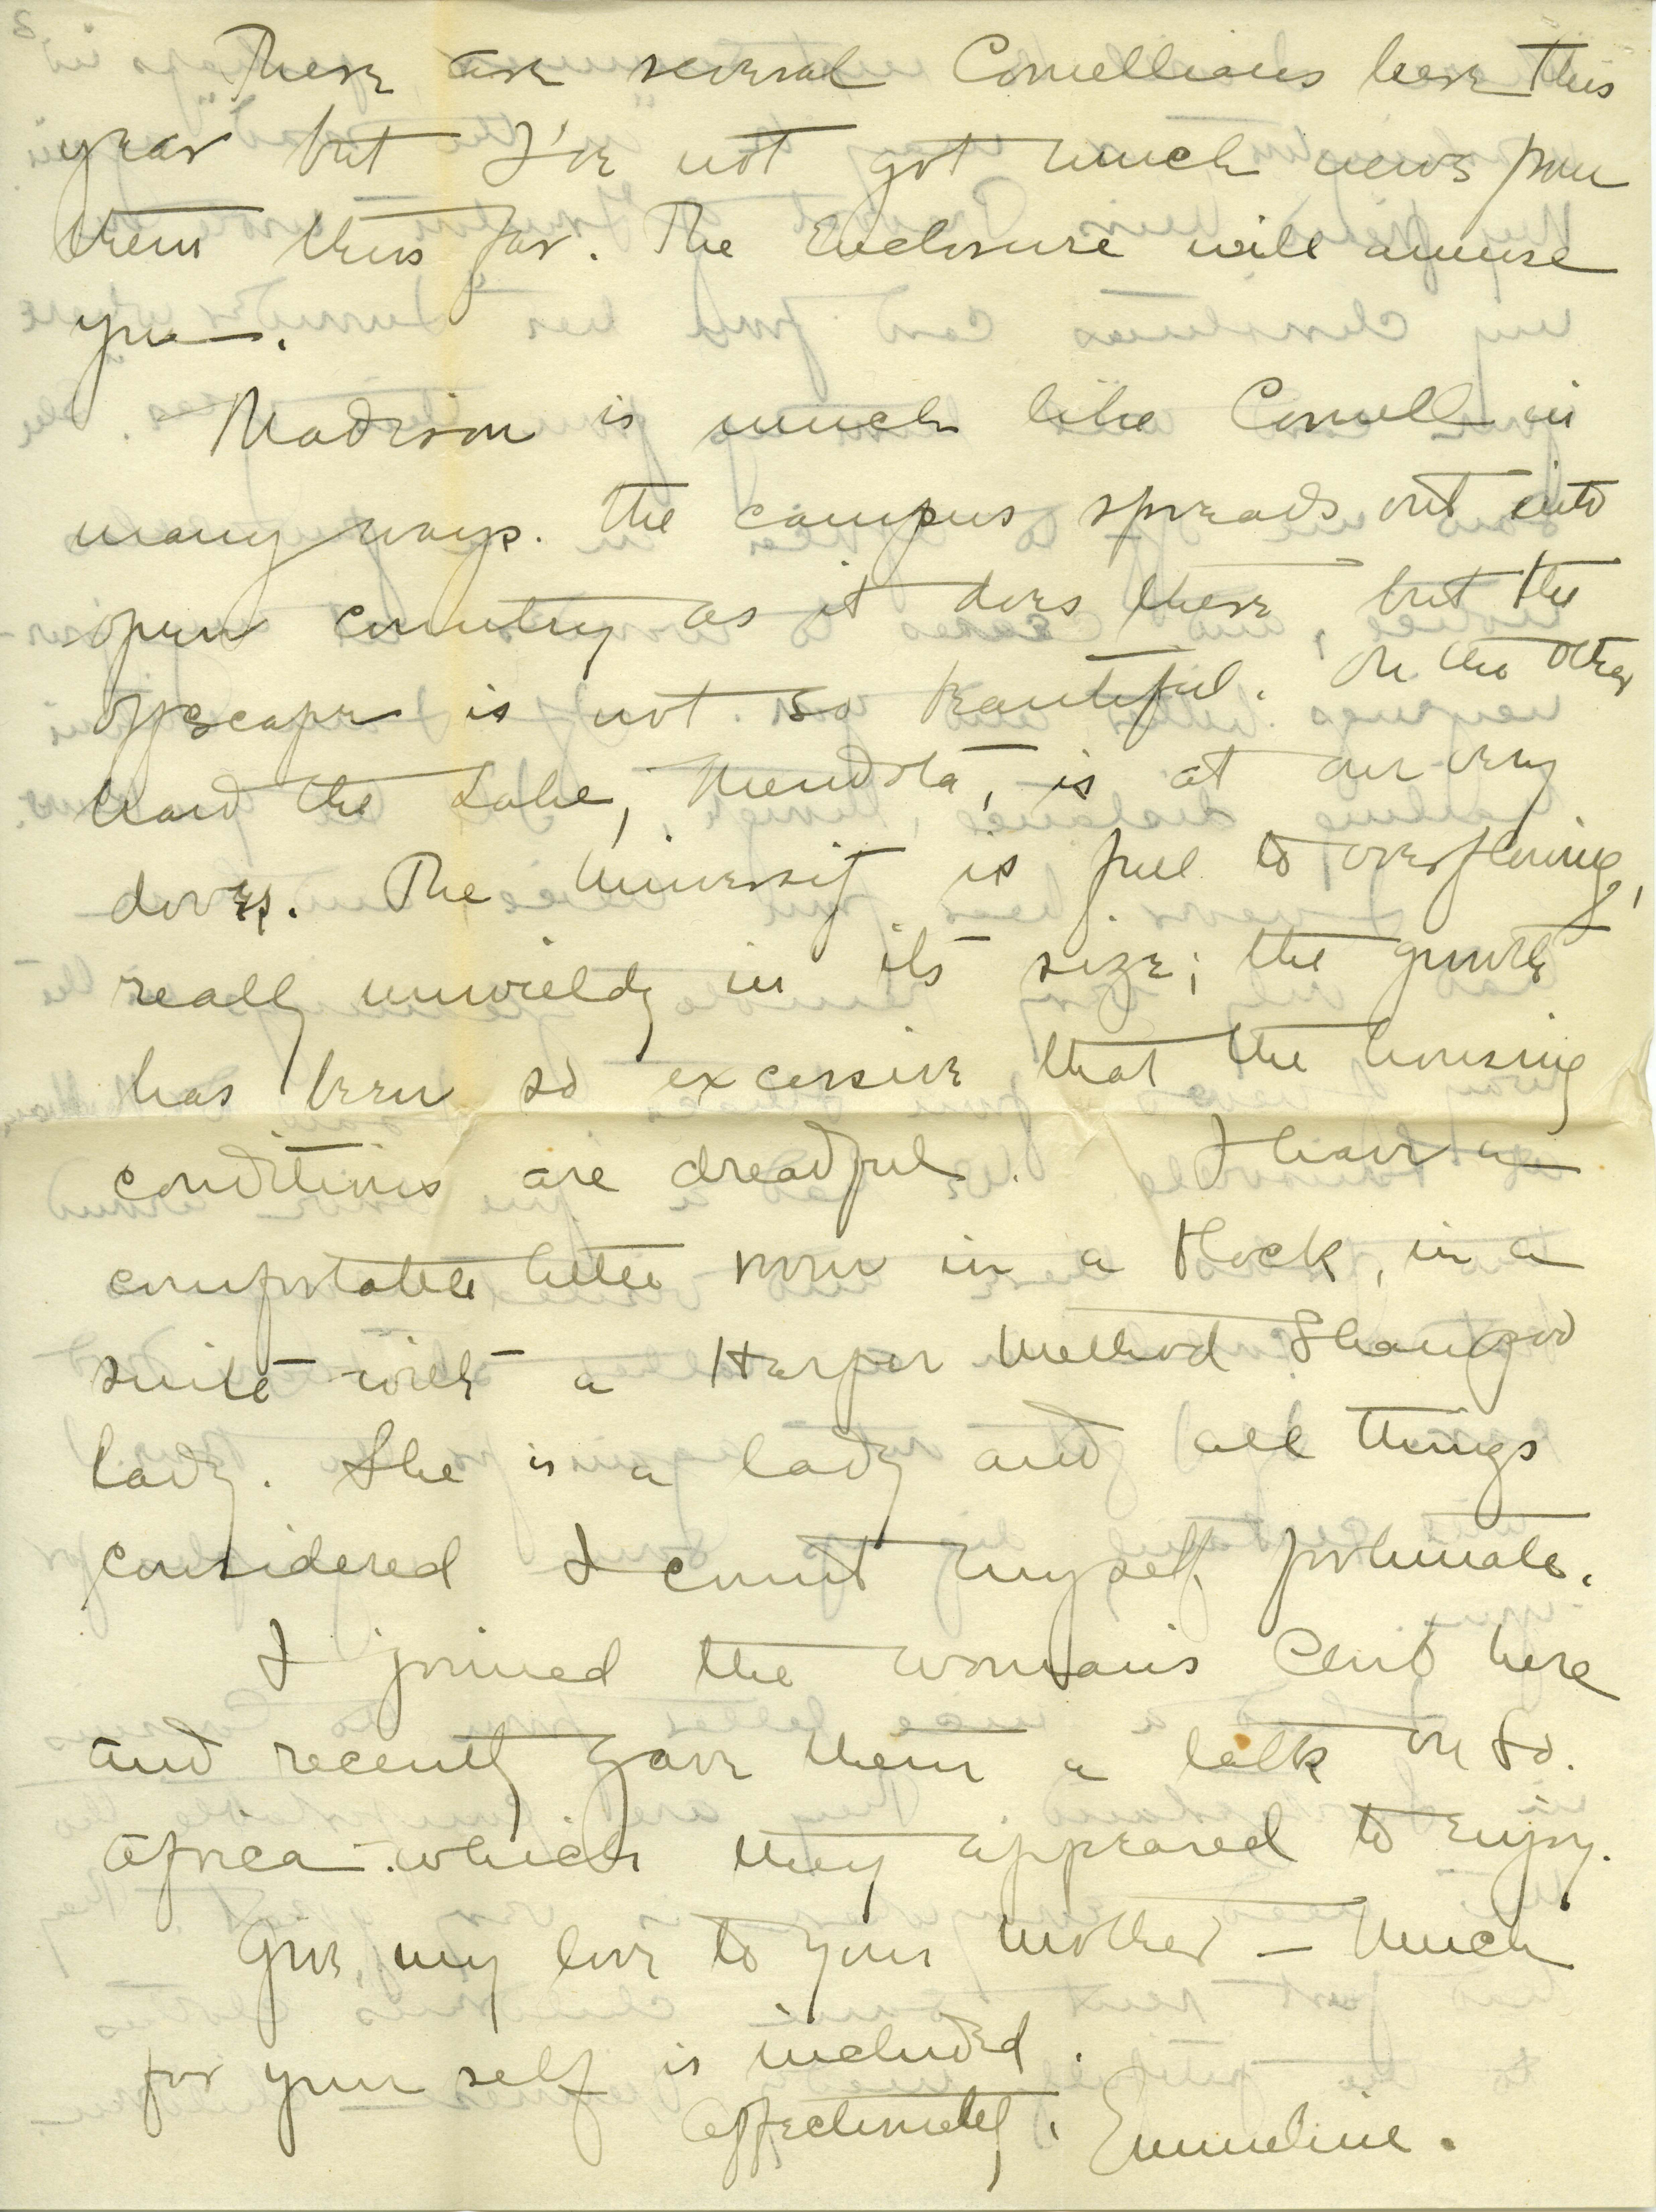 There are several Cornellians here this
year but I've not got much news from
them thus far. The Enclosure will amuse
you.
Madison is much like Cornell in
many ways. The campus spreads out into
open country as it does there, but the
offscape is not so beautiful. On the other
hand the Lake, Mendota, is at our very
doors. The University is full to overflowing,
really unwieldy in its size; the growth
has been so excessive that the housing
conditions are dreadful. I have a
comfortable little room in a block, in a
suite with a Harper Method Shampoo
lady. She is a lady and all things
considered I count myself fortunate.
I joined the woman's Club here
and recently gave them a talk on So.
Africa - which they appeared to enjoy.
Give my love to your mother - Much
for your self is included.
Affectionately, Emmeline.